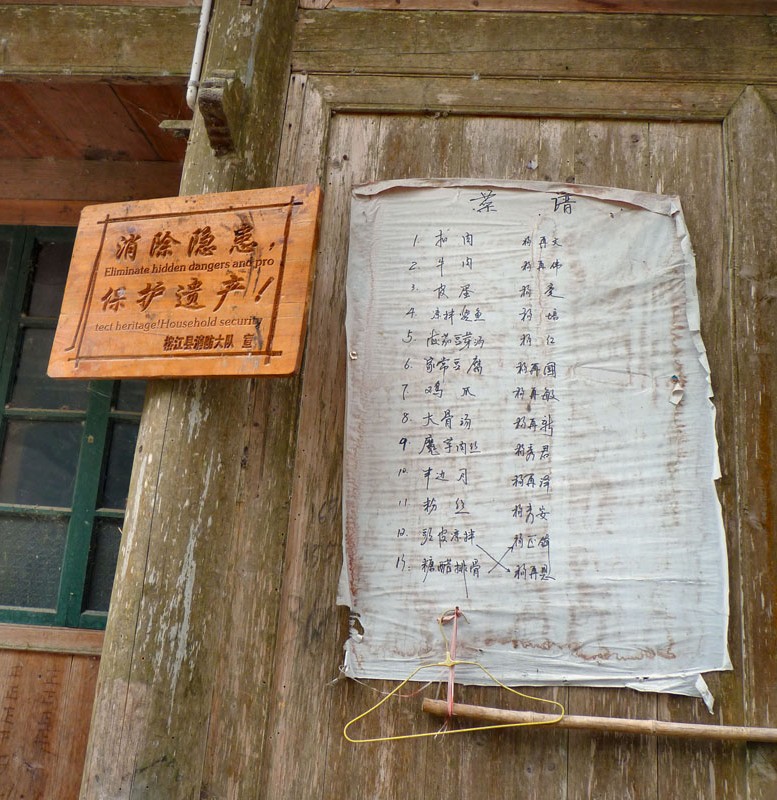 消除隐患，
Eliminate hidden dangers and pro
保护遗产！
tect heritage!Household security
榕江县消防大队 宣
菜 谱
1. 扣肉 杨再文
2. 牛肉 杨再伟
3. 皮蛋 杨
4. 凉拌鱼 杨培
5. 豆芽汤 杨
6. 家常豆腐 杨再国
7. 鸡爪 杨再敏
8. 大骨汤 杨再新
9. 魔芋肉丝 杨秀君
10. 半边月 杨再泽
11. 粉丝 杨秀安
12. 皮凉拌 杨正
13. 糖醋排骨 杨再恩